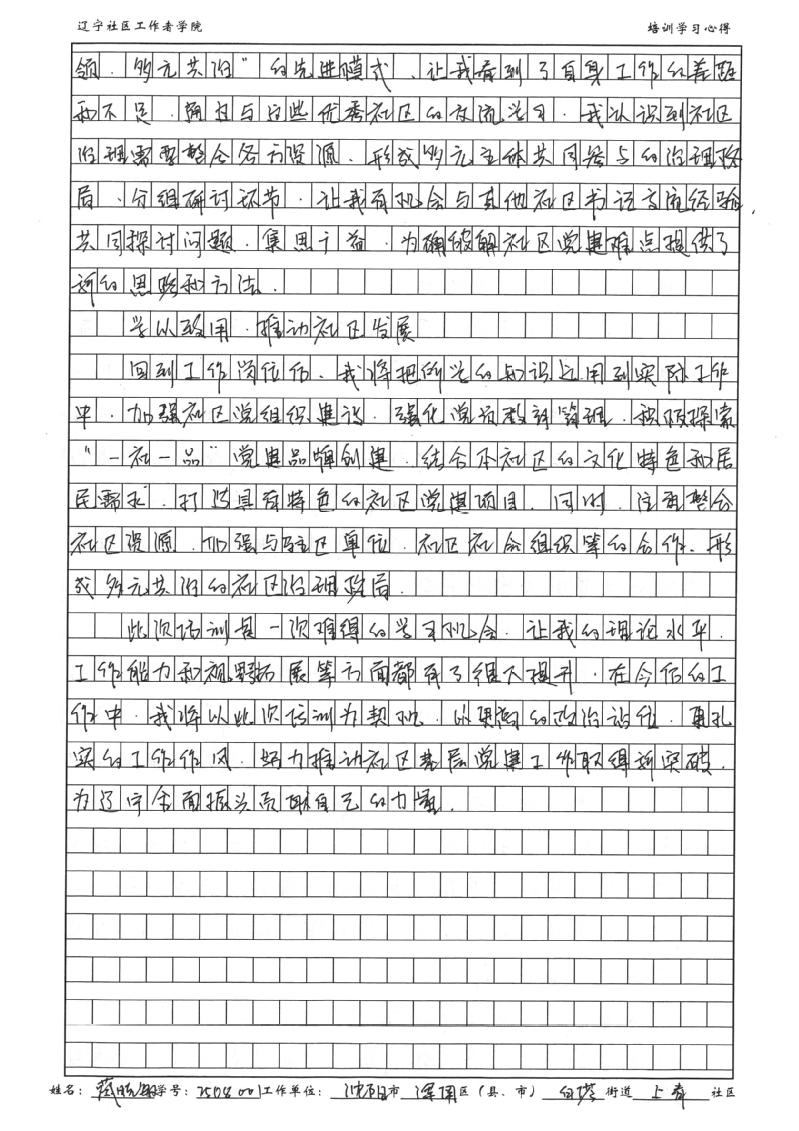 辽宁社区工作者学院 培训学习心得
领、多元共治”的先进模式、让我看到了自身工作的差距
和不足。通过与这些优秀社区的交流学习、我认识到社区
治理需要整合各方资源、形成多元主体共同参与的治理格
局、分组研讨环节、让我有机会与其他社区书记交流经验，
共同探讨问题、集思广益、为破解社区党建难点提供了
新的思路和方法。
学以致用、推动社区发展
回到工作岗位后、我将把所学的知识运用到实际工作
中、加强社区党组织建设、强化党员教育管理、积极探索
“一社一品”党建品牌创建、结合本社区的文化特色和居
民需求、打造具有特色的社区党建项目。同时、注重整合
社区资源、加强与驻区单位、社区社会组织等的合作、形
成多元共治的社区治理格局。
此次培训是一次难得的学习机会、让我的理论水平、
工作能力和视野拓展等方面都有了很大提升、在今后的工
作中、我将以此次培训为契机、以更高的政治站位、更扎
实的工作作风、努力推动社区基层党建工作取得新突破、
为辽宁全面振兴贡献自己的力量。
姓名： 学号：2508001 工作单位：沈阳市 浑南区（县、市） 白塔街道 上寿社区